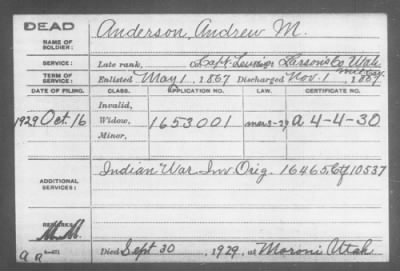 DEAD
NAME OF SOLDIER: Anderson, Andrew M.
SERVICE: Late rank, Capt. Larson's Co Utah
Mil Cav.
TERM OF SERVICE: Enlisted May 1, 1867 Discharged Nov. 1, 1867
DATE OF FILING. CLASS. APPLICATION NO. LAW. CERTIFICATE NO.
Invalid,
1929 Oct. 16 Widow, 1653001 Mar 3-27 a 4-4-30
Minor,
ADDITIONAL SERVICES: Indian War Inv Orig. 16465 Ctf 10537
REMARKS:
Died Sept 30, 1929, at Moroni Utah